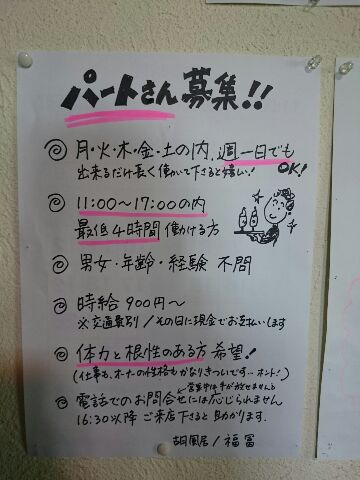 パートさん募集!!
月・火・木・金・土の内、週一日でも
出来るだけ長く働いて下さると嬉しい! OK!
11:00〜17:00の内
最低4時間 働ける方
男女・年齢・経験 不問
時給 900円〜
※交通費別/その日に現金でお支払いします
体力と根性のある方 希望!
(仕事も、オーナーの性格もかなりきついです…ホント!)
営業中は手が放せませんと
電話でのお問合せには応じられません
16:30以降 ご来店下さると助かります.
胡風居/福冨